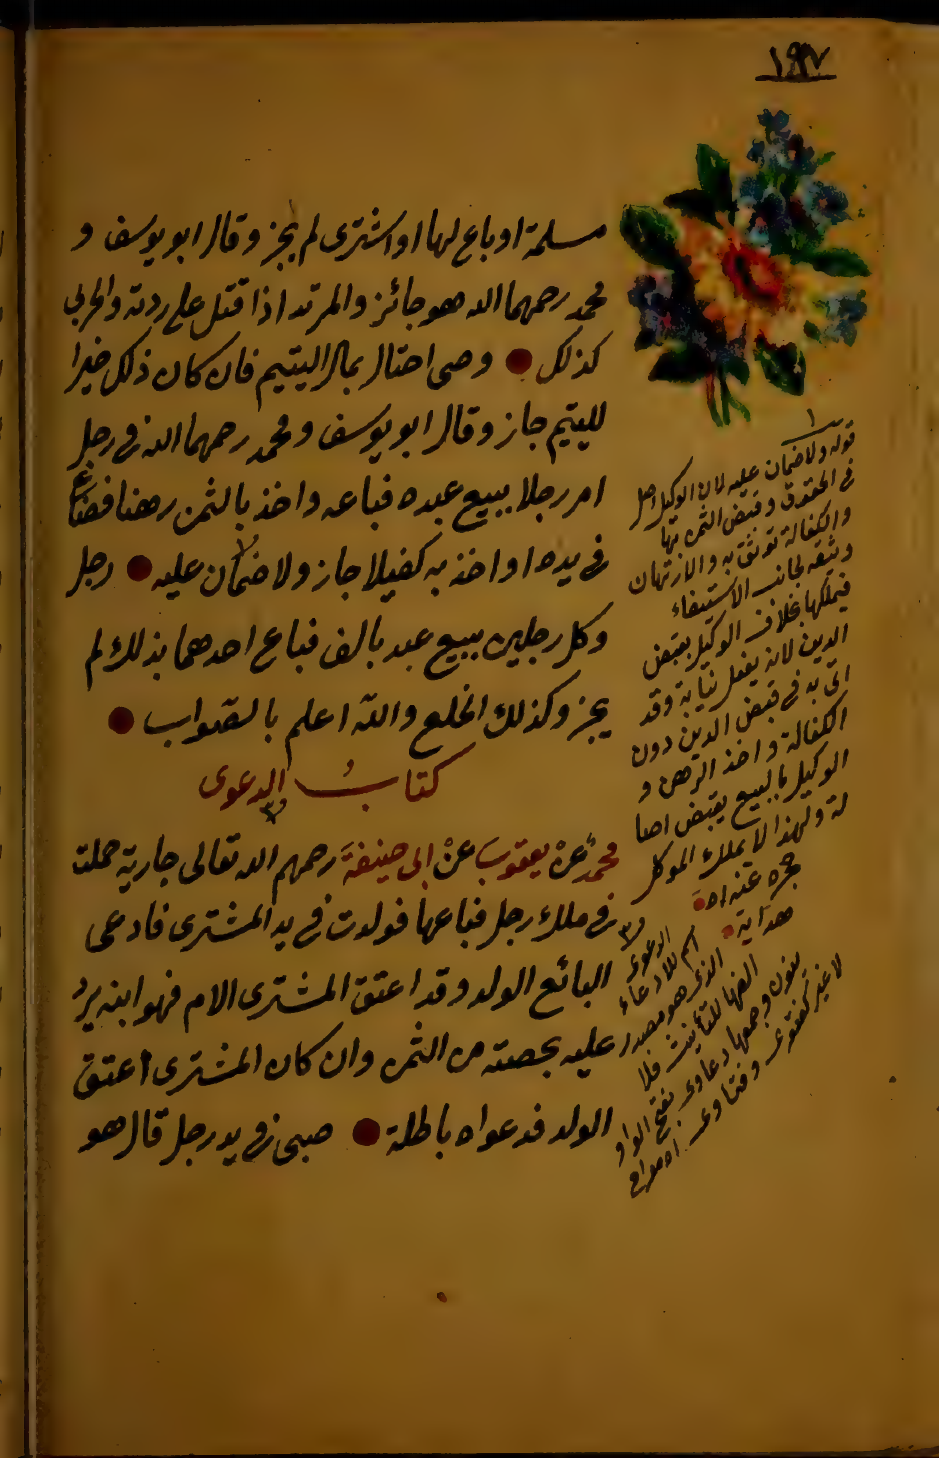 ١٩٧
مسلمة او باع لها او اشترى لم يجز وقال ابو يوسف و
محمد رحمهما الله هو جائز والمرتد اذا قتل على ردته والحربى
كذلك ● وصى احتال بمال اليتيم فان كان ذلك خيرا
لليتيم جاز وقال ابو يوسف ومحمد رحمهما الله فى رجل
امر رجلا ببيع عبده فباعه واخذ بالثمن رهنا فضاع
فى يده او اخذ به كفيلا جاز ولا ضمان عليه ● رجل
وكل رجلين ببيع عبد بالف فباع احدهما بذلك لم
يجز وكذلك الخلع والله اعلم بالصواب ●
كتاب الدعوى
محمد عن يعقوب عن ابى حنيفة رحمهم الله تعالى جارية حملت
فى ملك رجل فباعها فولدت فى يد المشترى فادعى
البائع الولد وقد اعتق المشترى الام فهو ابنه يرد
عليه بحصته من الثمن وان كان المشترى اعتق
الولد فدعواه باطلة ● صبى فى يد رجل قال هو
١
قوله ولا ضمان عليه لان الوكيل اصل
فى الحقوق وقبض الثمن منها
والكفالة توثق به والارتهان
وثيقة لجانب الاستيفاء
فيملكها بخلاف الوكيل بقبض
الدين لانه يفعل نيابة وقد
اتى به فى قبض الدين دون
الكفالة واخذ الرهن و
الوكيل بالبيع يقبض اصا
لة ولهذا لا يملك الموكل
حجره عنه اه
هداية
٣
الدعوى
اسم للادعاء
الذى هو مصدر
الفها للتأنيث فلا
ينون وجمعها دعاوى بفتح الواو
لا غير كفتوى وفتاوى اه